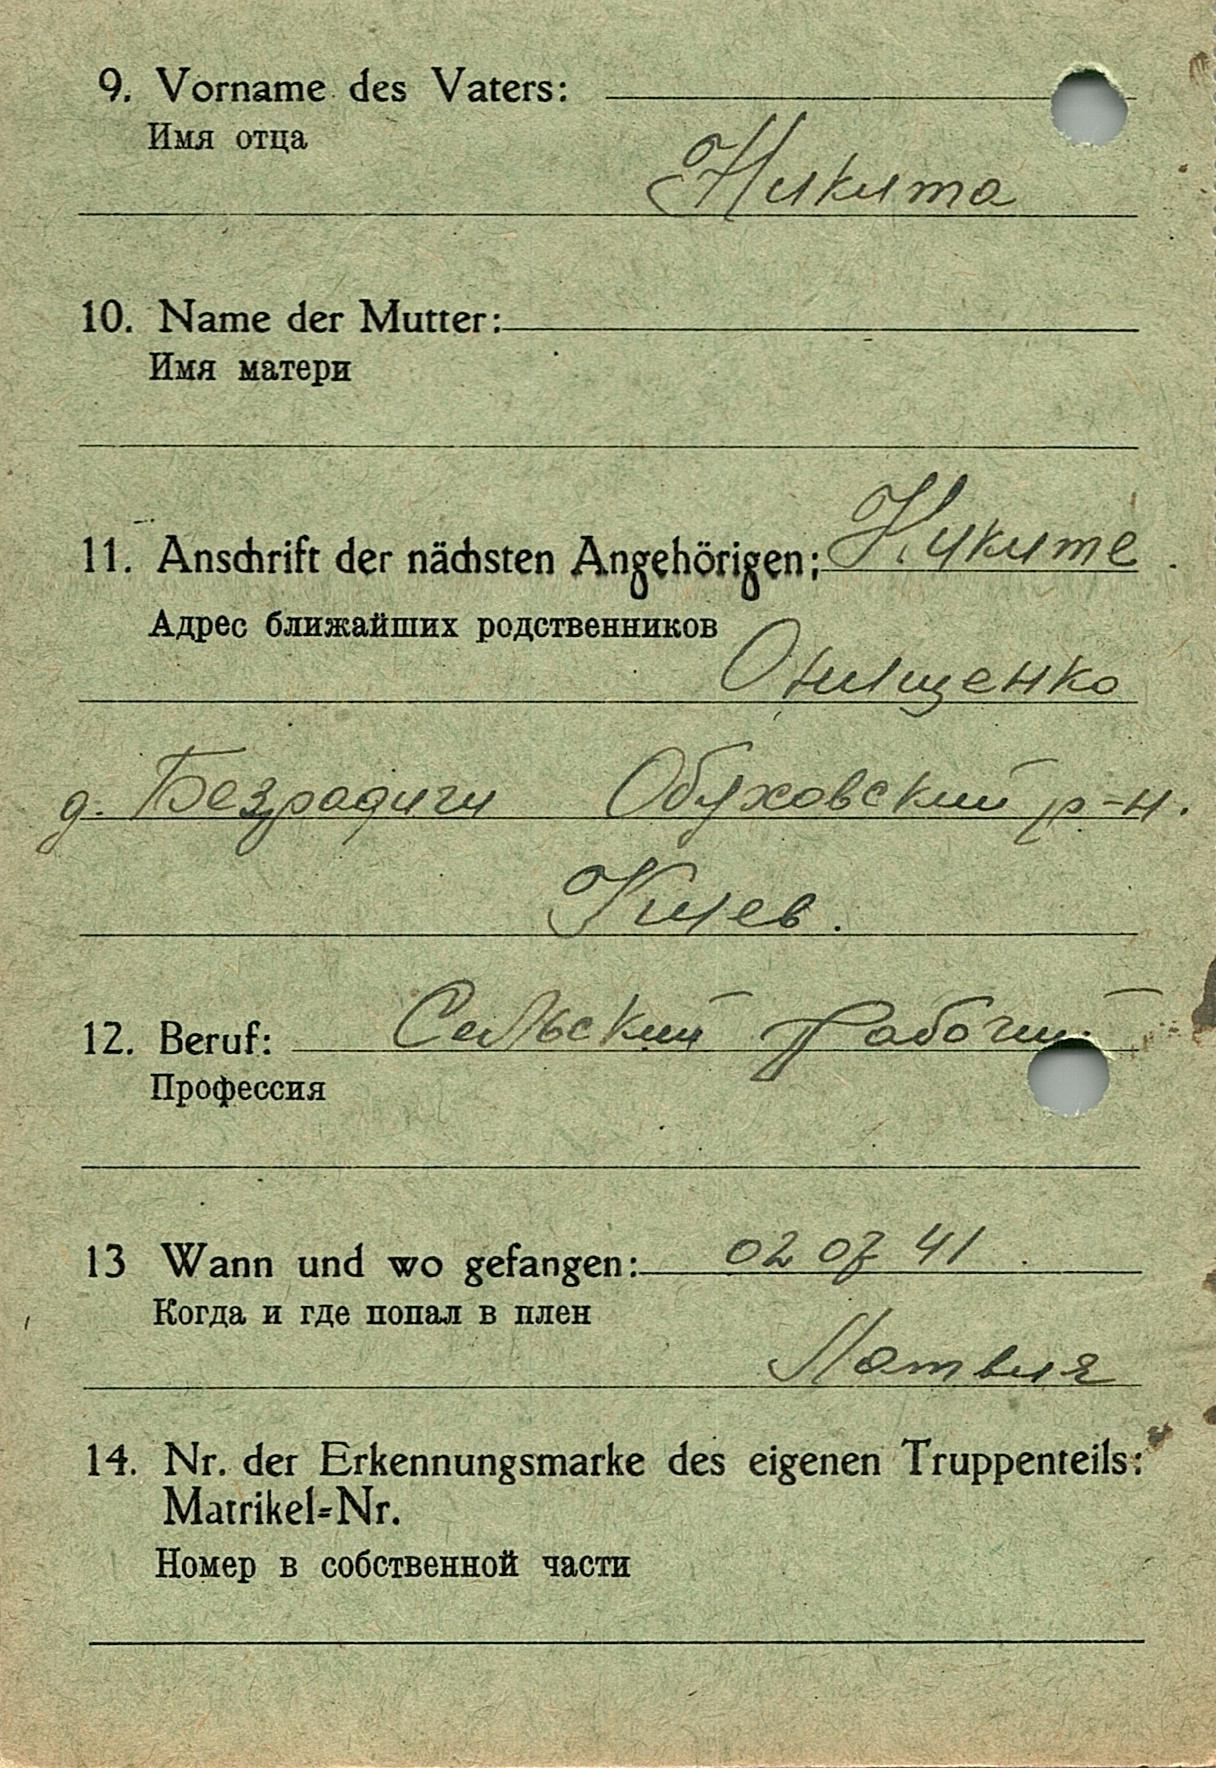 9. Vorname des Vaters:
Имя отца
Никита
10. Name der Mutter:
Имя матери
11. Anschrift der nächsten Angehörigen: Никите
Адрес ближайших родственников
Онищенко
д. Безрадичи Обуховский р-н.
Киев.
12. Beruf: Сельский рабочий
Профессия
13 Wann und wo gefangen: 02 07 41
Когда и где попал в плен
Латвия
14. Nr. der Erkennungsmarke des eigenen Truppenteils:
Matrikel=Nr.
Номер в собственной части